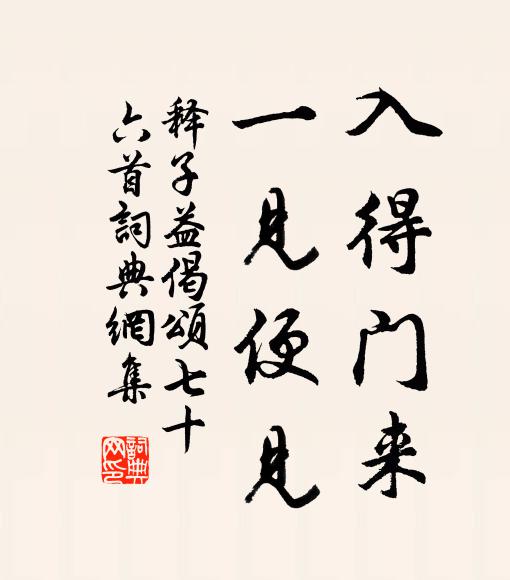 入得门来
一见便见
释子益偈颂七十
六首詞典網集
詞典
网印